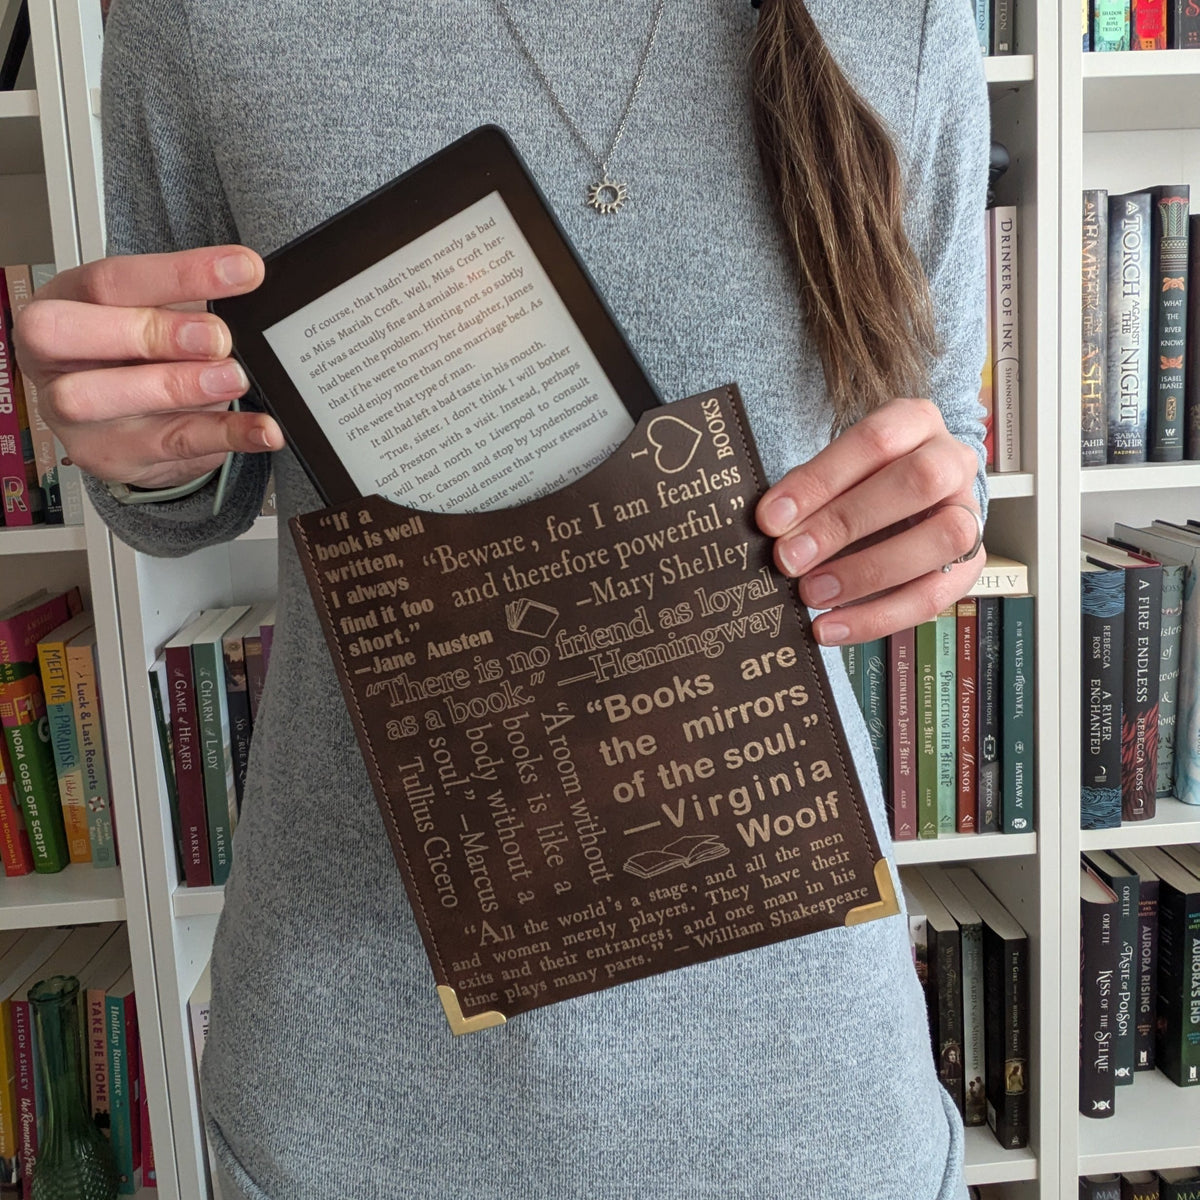 Of course, that hadn't been nearly as bad
as Miss Mariah Croft. Well, Miss Croft her-
self was actually fine and amiable. Mrs. Croft
had been the problem. Hinting not so subtly
that if he were to marry her daughter, James
could enjoy more than one marriage bed. As
if he were that type of man.
It all had left a bad taste in his mouth.
"True, sister. I don't think I will bother
Lord Preston with a visit. Instead, perhaps
will head north to Liverpool to consult
th Dr. Carson and stop by Lyndenbrooke
I should ensure that your steward is
he estate well."
he sighed. "It would
I
BOOKS
"If a
book is well
written,
I always
find it too
short."
—Jane Austen
"Beware, for I am fearless
and therefore powerful."
–Mary Shelley
"There is no friend as loyal
as a book." —Hemingway
"Books are
the mirrors
of the soul."
—Virginia
Woolf
"A room without
books is like a
body without a
soul." – Marcus
Tullius Cicero
"All the world's a stage, and all the men
and women merely players. They have their
exits and their entrances; and one man in his
time plays many parts." – William Shakespeare
SHADOW AND BONE TRILOGY
DRINKER OF INK
SHANNON CASTLETON
AN EMBER IN THE ASHES
TAHIR
A TORCH AGAINST THE NIGHT
SABAA TAHIR
RAZORBILL
WHAT THE RIVER KNOWS
ISABEL IBAÑEZ
SUMMER
CINDY STEEL
MEET ME IN PARADISE
Libby Hubscher
Luck & Last Resorts
NORA GOES OFF SCRIPT
ANNABEL MONAGHAN
A GAME OF HEARTS
BARKER
A CHARM OF A LADY
BARKER
WALKER
THE MATCHMAKER'S LONELY HEART
ALLEN
TO CAPTURE HIS HEART
ALLEN
PROTECTING HER HEART
WRIGHT
WINDSONG MANOR
ALLEN
THE RECLUSE OF WOLFETON HOUSE
STOCKTON
IN THE WAVES OF TRISTWICK
HATHAWAY
REBECCA ROSS
A RIVER ENCHANTED
A FIRE ENDLESS
REBECCA ROSS
ALLISON ASHLEY
the Roommate Pact
TAKE ME HOME
Holiday Romance
THE GIRL
ODETTE
KISS OF THE SELKIE
ODETTE
A TASTE OF POISON
AURORA RISING
AURORA'S END